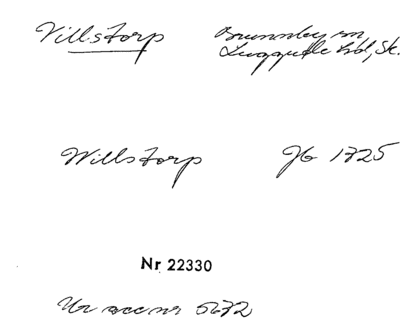 Villstorp Brunnby sn,
Luggude hd, Sk.
Willstorp Jb 1725
Nr 22330
Ur acc nr 5672